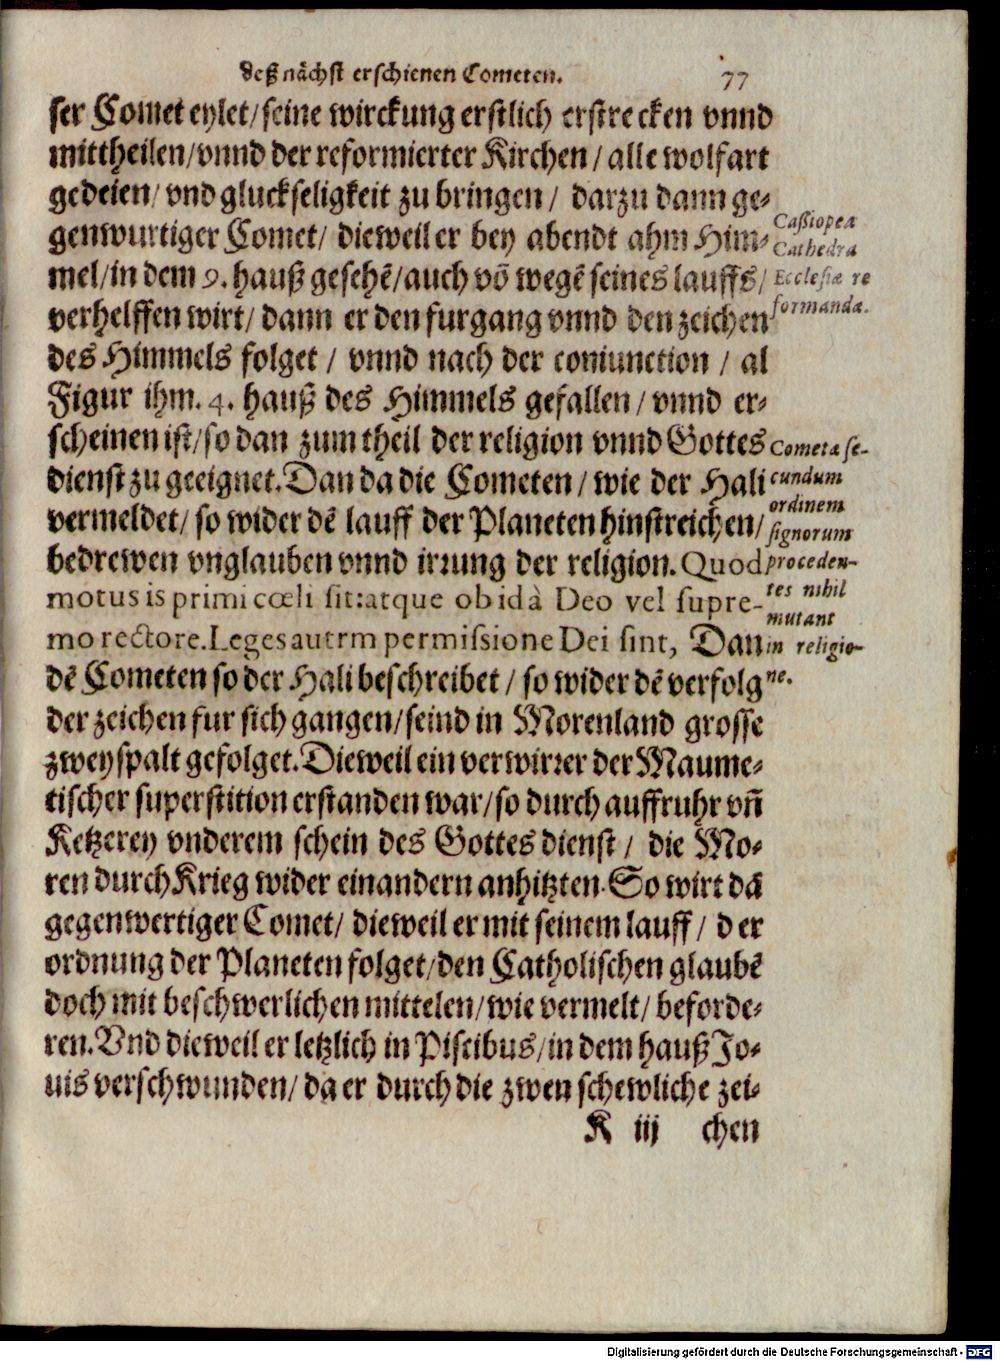 deß nächst erschienen Cometen. 77
ser Comet eylet/seine wirckung erstlich erstrecken vnnd
mittheilen/vnnd der reformierter Kirchen/alle wolfart
gedeien/vnd gluckseligkeit zu bringen/ darzu dann ge-
genwurtiger Comet/ dieweil er bey abendt ahm Him-
mel/in dem 9. hauß gesehē/auch vō wegē seines lauffs/
verhelffen wirt/ dann er den furgang vnnd den zeichen
des Himmels folget / vnnd nach der coniunction / al
Figur ihm. 4. hauß des Himmels gefallen/ vnnd er-
scheinen ist/so dan zum theil der religion vnnd Gottes
dienst zu geeignet. Dan da die Cometen/ wie der Hali
vermeldet/ so wider dē lauff der Planeten hinstreichen/
bedrewen vnglauben vnnd irrung der religion. Quod
motus is primi cœli sit:atque ob id à Deo vel supre-
mo rectore. Leges autrm permissione Dei sint, Dan
dē Cometen so der Hali beschreibet/ so wider dē verfolg
der zeichen fur sich gangen/seind in Morenland grosse
zweyspalt gefolget. Dieweil ein verwirrer der Maume-
tischer superstition erstanden war/so durch auffruhr vñ
Ketzerey vnderem schein des Gottes dienst/ die Mo-
ren durch Krieg wider einandern anhitzten. So wirt dā
gegenwertiger Comet/ dieweil er mit seinem lauff/ der
ordnung der Planeten folget/den Catholischen glaubē
doch mit beschwerlichen mittelen/wie vermelt/ beforde-
ren. Vnd dieweil er letzlich in Piscibus/in dem hauß Jo-
uis verschwunden/ da er durch die zwen schewliche zei-
K iij chen
Cassiopea
Cathedra
Ecclesiæ re
formandæ.
Cometæ se-
cundum
ordinem
signorum
proceden-
tes nihil
mutant
in religio-
ne.
Digitalisierung gefördert durch die Deutsche Forschungsgemeinschaft - DFG